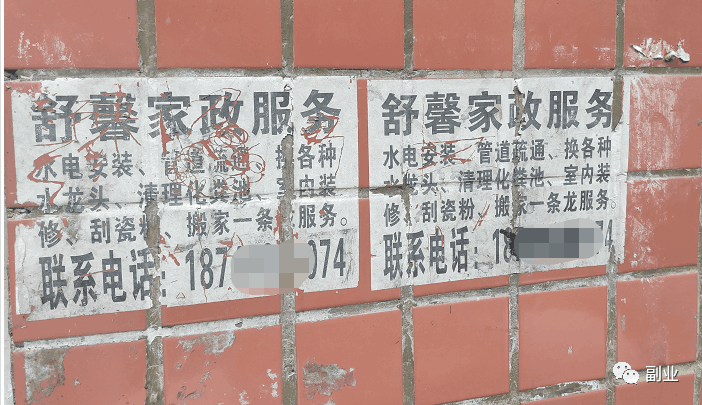 舒馨家政服务
水电安装、管道疏通、换各种
水龙头、清理化粪池、室内装
修、刮瓷粉、搬家一条龙服务。
联系电话：187 074
舒馨家政服务
水电安装、管道疏通、换各种
水龙头、清理化粪池、室内装
修、刮瓷粉、搬家一条龙服务。
联系电话：18 74
副业